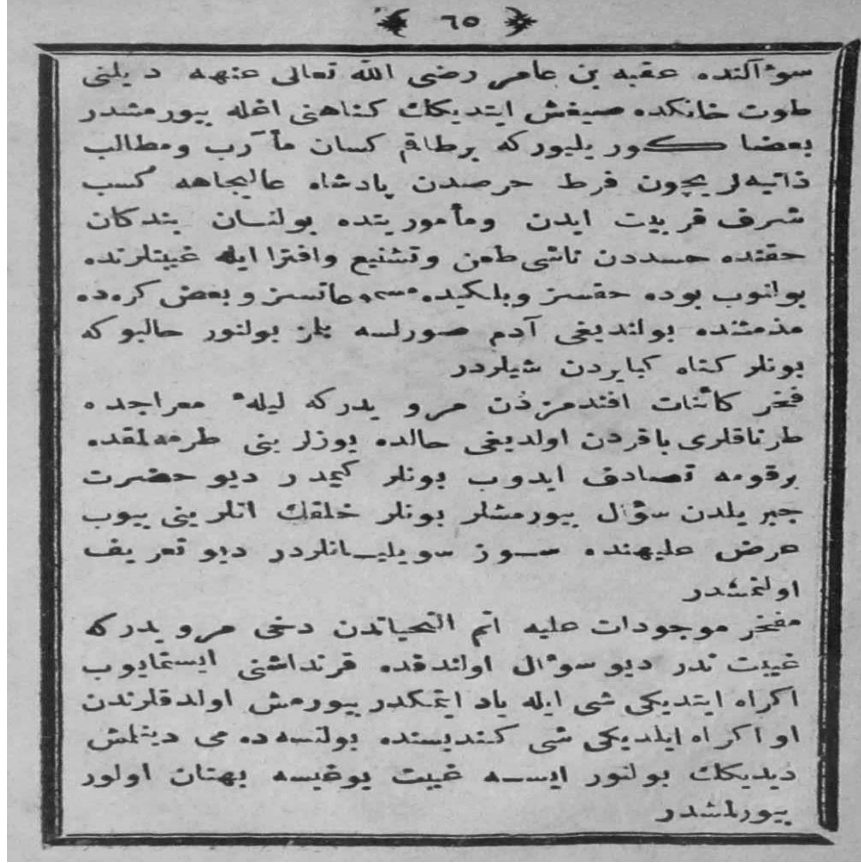 ٦٥
سؤآلنده عقبه بن عامر رضى الله تعالى عنهه ديلنى
طوت خانكده صيغش ايتديكك كناهنى اغله بيورمشدر
بعضا كوريليوركه برطاقم كسان مأرب ومطالب
ذاتيه‌لريچون فرط حرصدن پادشاه عاليجاهه كسب
شرف قربيت ايدن ومأموريتده بولنان بندكان
حقنده حسددن ناشى طعن وتشنيع وافترا ايله غيبتلرنده
بولنوب بوده حقسز وبلكيده مسموعاتسز وبعض كره‌ده
مذمتنده بولنديغى آدم صورلسه بلمز بولنور حالبوكه
بونلر كناه كبايردن شيلردر
فخر كائنات افندمزدن مرويدركه ليلهٔ معراجده
طرناقلرى باقردن اولديغى حالده يوزلرينى طرمه‌لمقده
برقومه تصادف ايدوب بونلر كيمدر ديو حضرت
جبريلدن سؤال بيورمشلر بونلر خلقك اتلرينى ييوب
عرض عليهنده سوز سويليانلردر ديو تعريف
اولنمشدر
مفخر موجودات عليه اتم التحياتدن دخى مرويدركه
غيبت ندر ديو سؤال اولندقده قرنداشنى ايستمايوب
اكراه ايتديكى شى ايله ياد ايتمكدر بيورمش اولدقلرندن
او اكراه ايلديكى شى كنديسنده بولنسه‌ده مى دينلمش
ديديكك بولنور ايسه غيبت يوغيسه بهتان اولور
بيورلمشدر